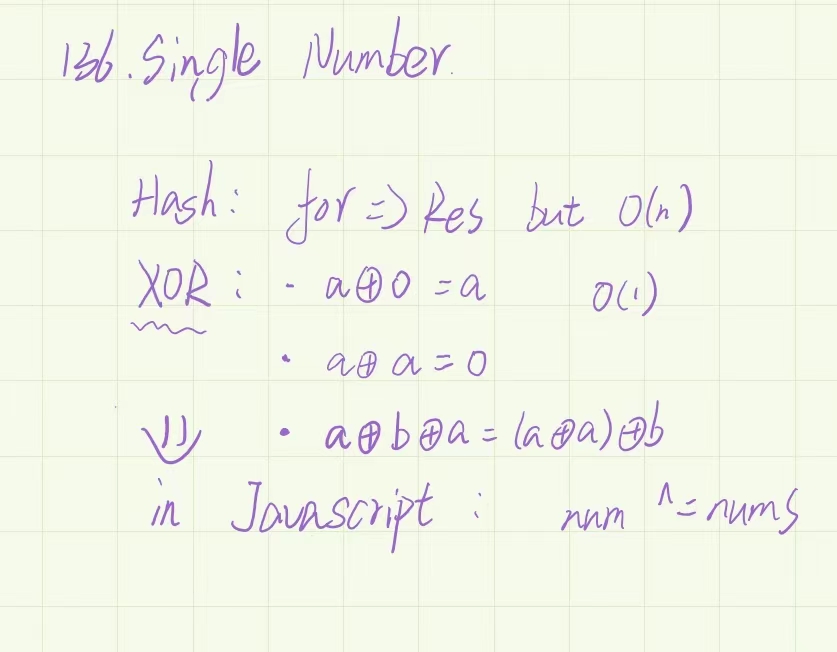 136. Single Number.
Hash: for => Res but O(n)
XOR: · a⊕0 = a O(1)
· a⊕a = 0
· a⊕b⊕a = (a⊕a)⊕b
in Javascript: num ^= nums